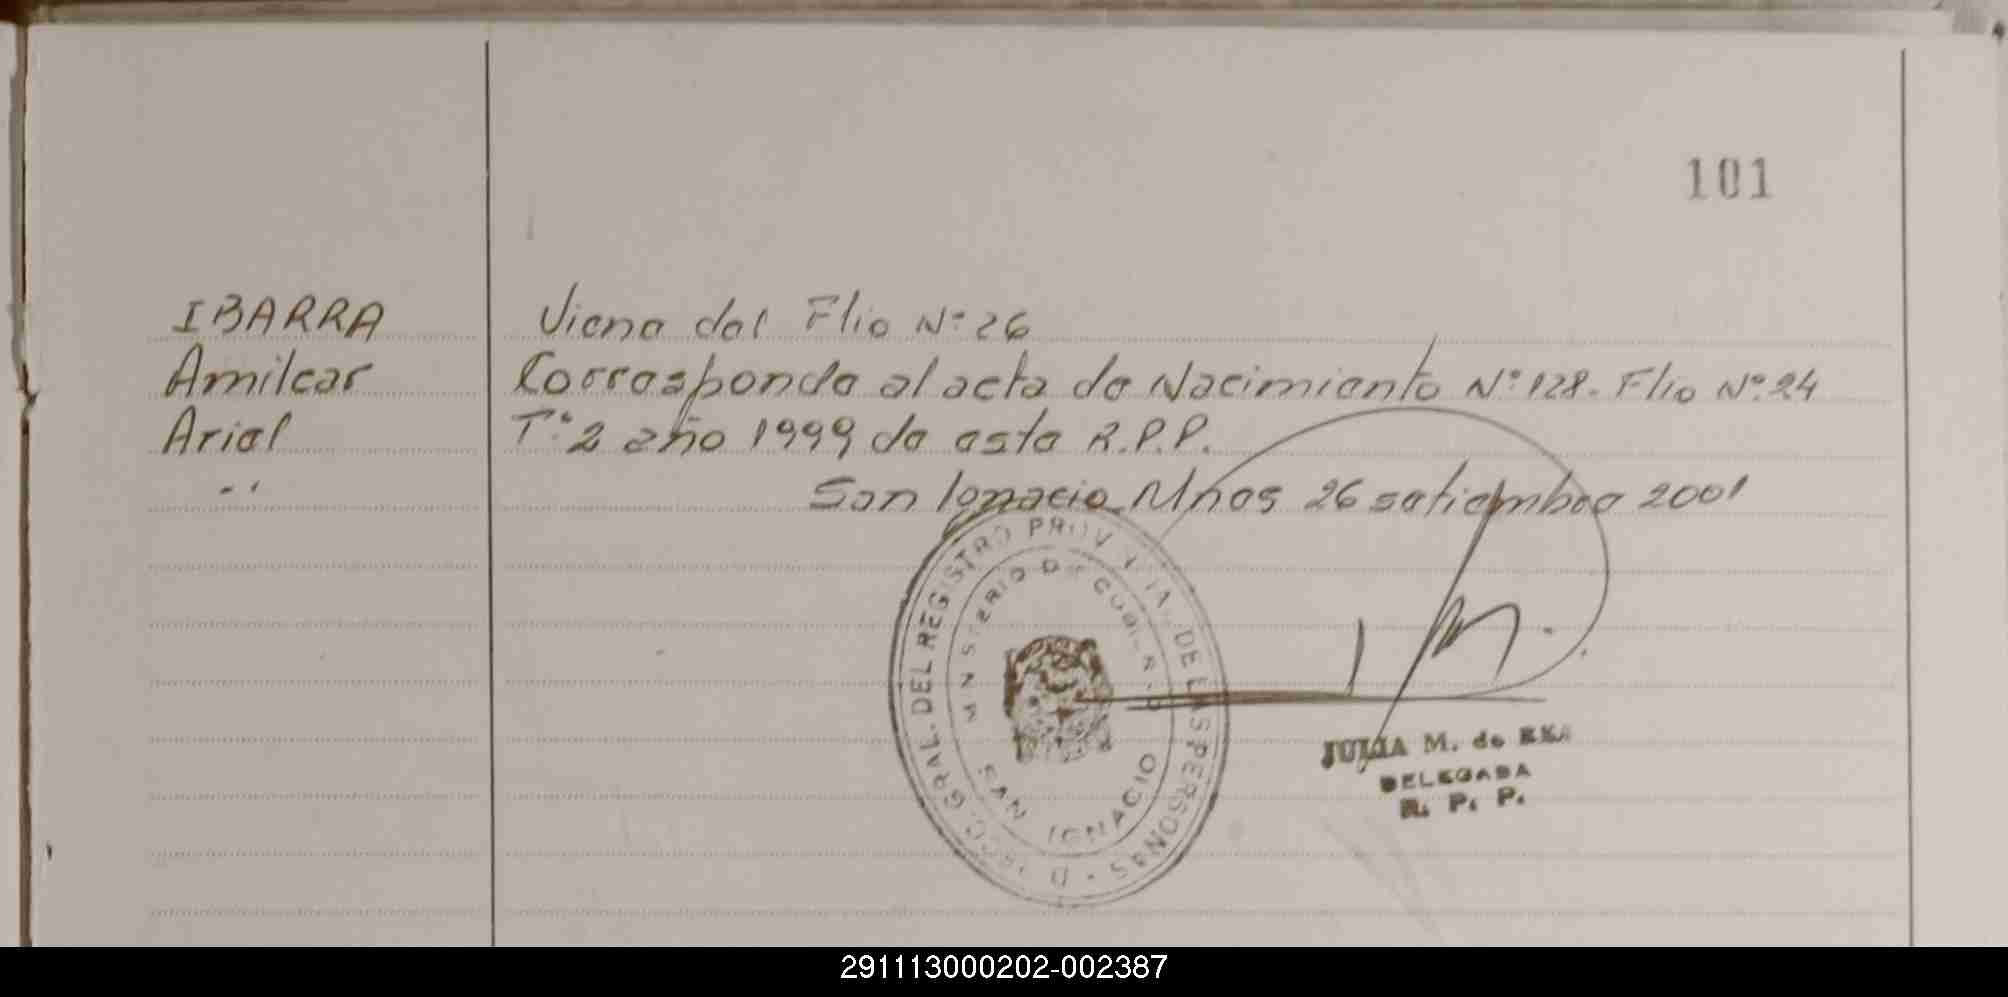 101
IBARRA
Amilcar
Ariel
Viene del Flio Nº 26
Corresponde al acta de Nacimiento Nº 128. Flio Nº 24
Tº 2 año 1999 de este R.P.P.
San Ignacio Mnes 26 setiembre 2001
GRAL. DEL REGISTRO PROV DE LAS PERSONAS
MINISTERIO DE GOBIERNO
SAN IGNACIO
JULIA M. de
DELEGADA
R. P. P.
291113000202-002387